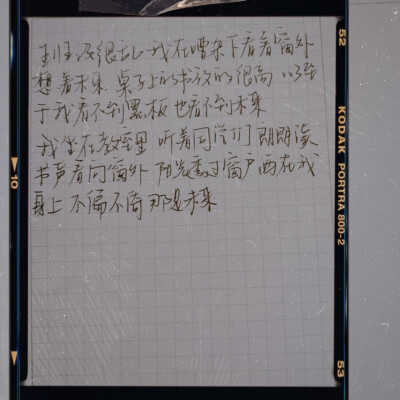 班级很乱 我在嘈杂下看着窗外
想着未来 桌子上的书放的很高 以至
于我看不到黑板 也看不到未来
我坐在教室里 听着同学们朗朗读
书声看向窗外 阳光透过窗户洒在我
身上 不偏不倚 那是未来
52
KODAK PORTRA 800-2
53
10